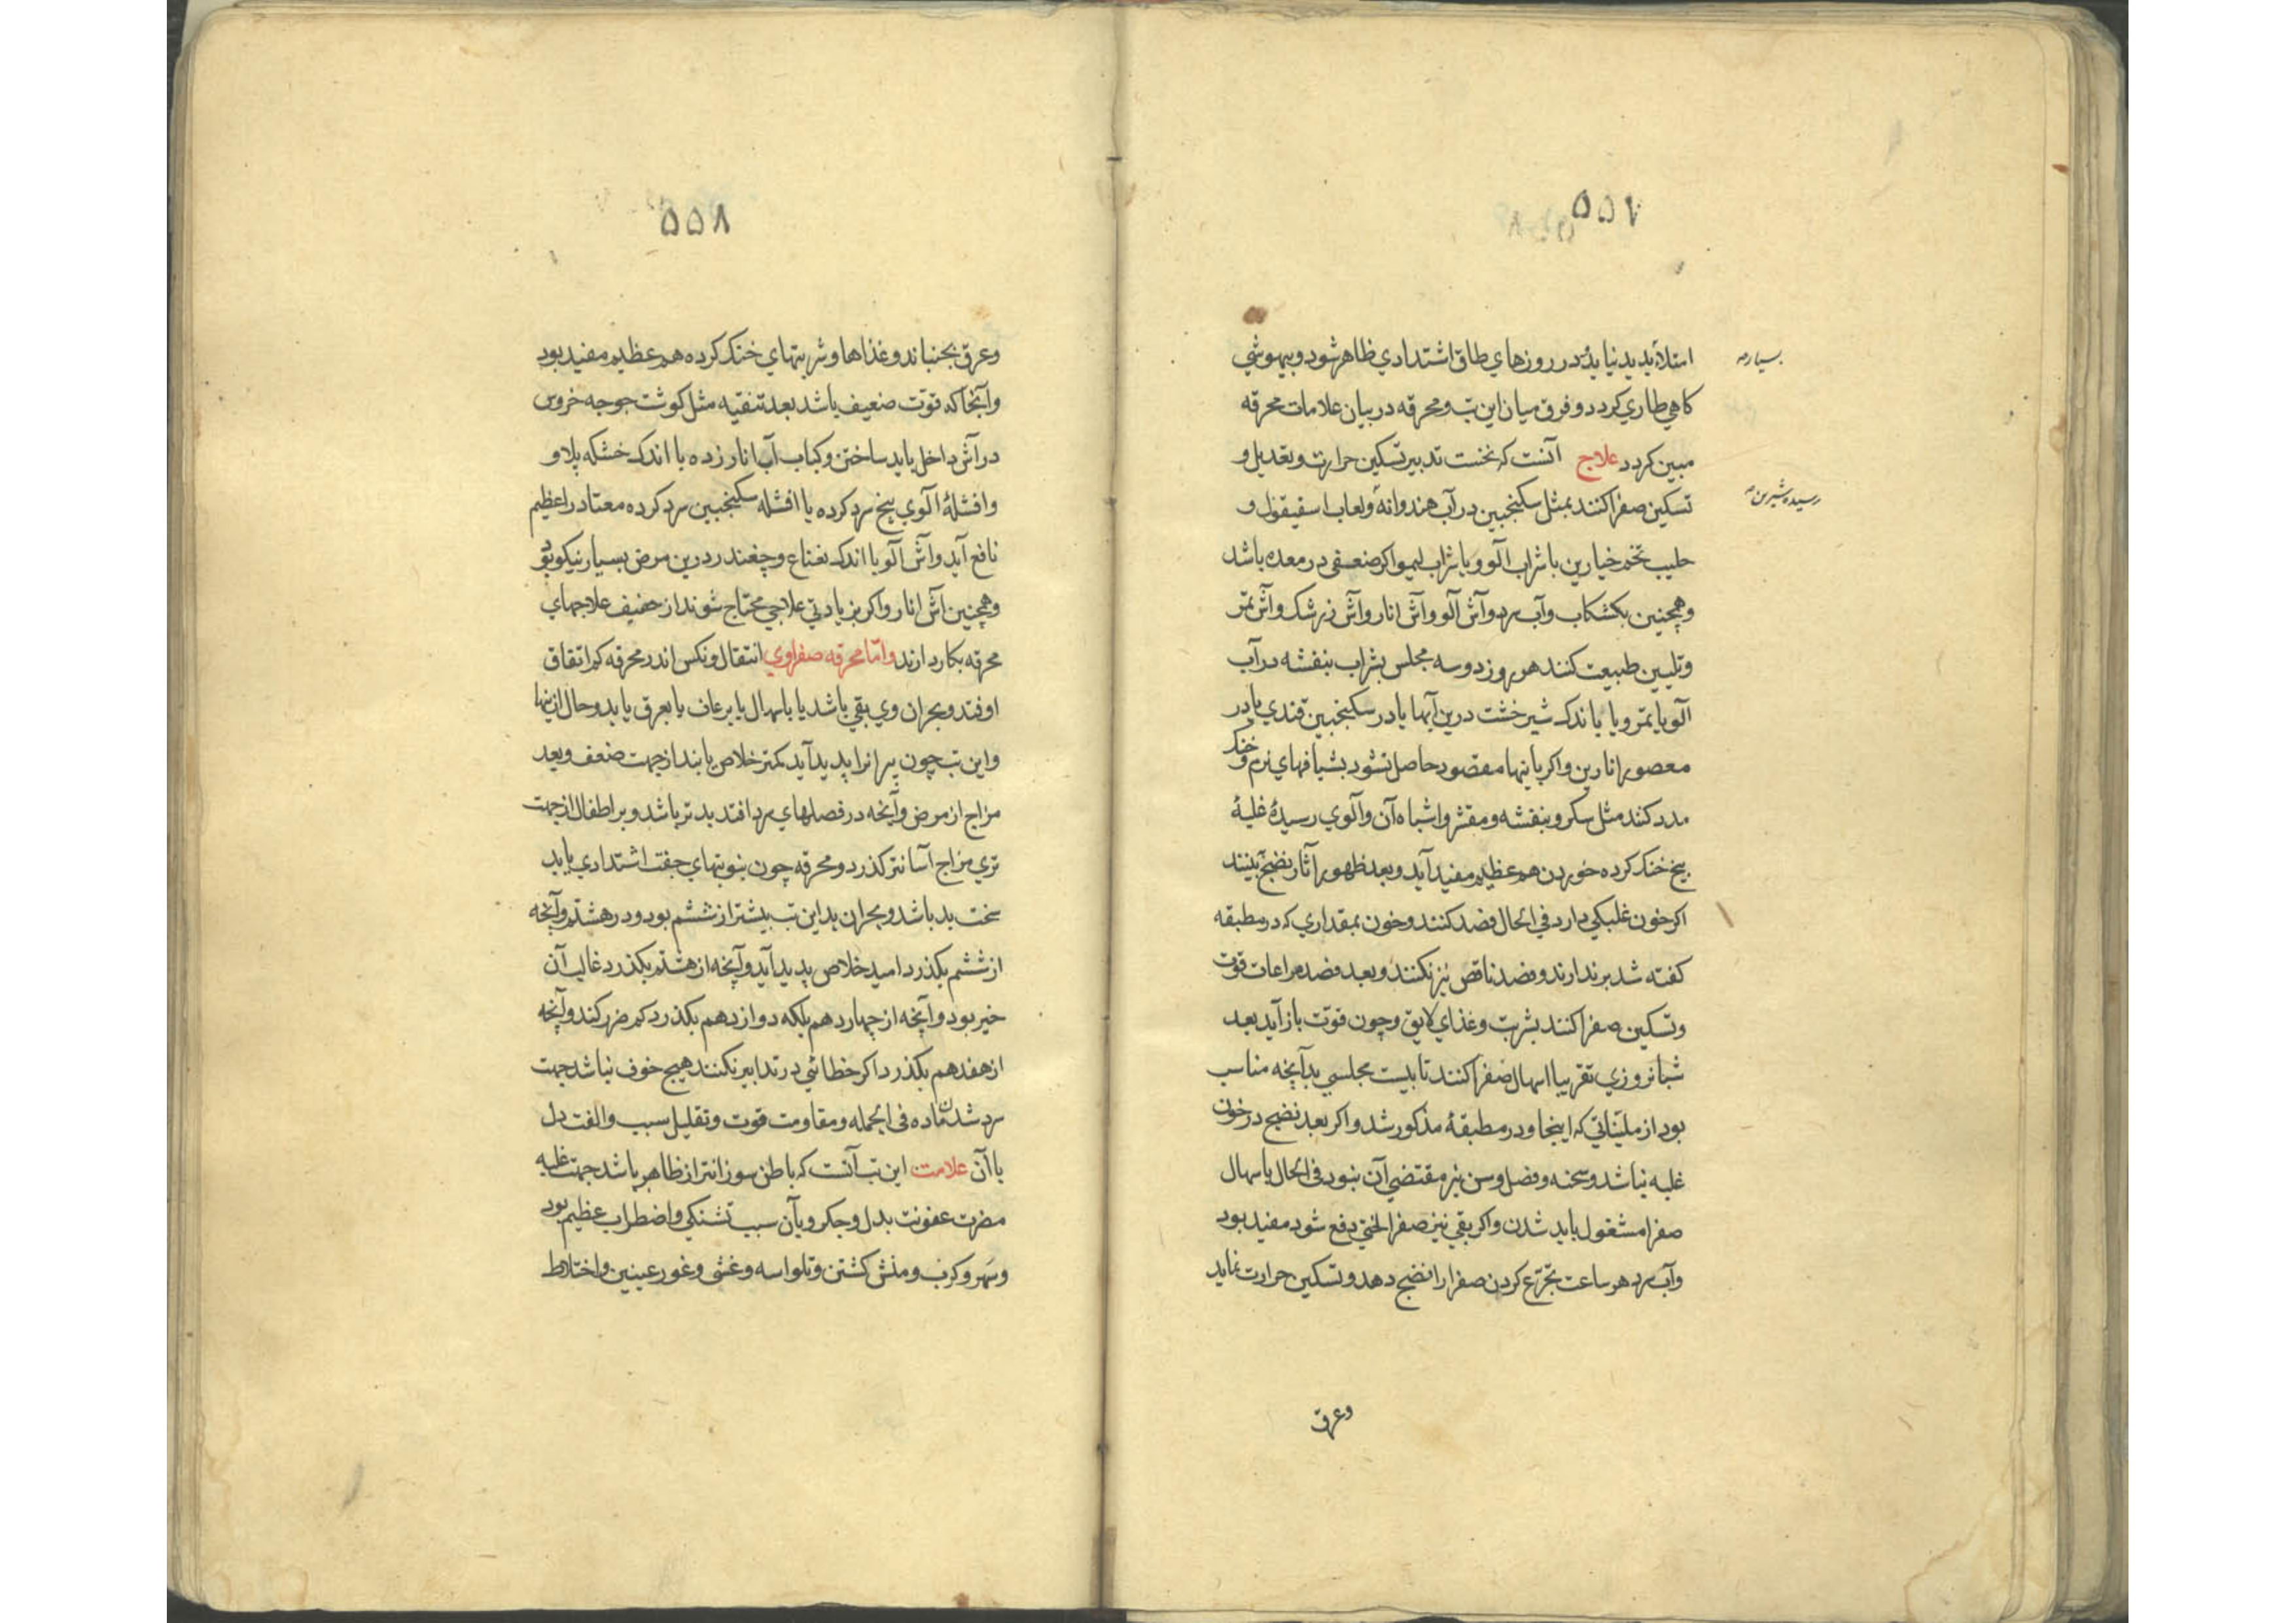 ۵۵۷
امتلاء پدید نیاید در روزهاي طاق اشتدادي ظاهر شود و بیهوشي
بسیار صه
کاهي طاري کردد و فرق میان این تب و محرقه در بیان علامات محرقه
مبین کردد علاج آنست که نخست تدبیر تسکین حرارت و تعدیل و
تسکین صفرا کنند بمثل سکنجبین در آب هندوانه و لعاب اسفیقول و
رسیده شیرین صه
حلیب تخم خیارین با شراب آلو و یا شراب لیمو اکر ضعفی در معده باشد
و همچنین بکشکاب و آب سرد و آش آلو و آش انار و آش زرشک و آش تمر
و تلیین طبیعت کنند هر روز دو سه مجلس بشراب بنفشه در آب
آلو یا تمر و یا باندک شیر خشت درین آبها یا در سکنجبین قندي یا در
معصور انارین و اکر باینها مقصود حاصل نشود بشیافهاي نرم و خنک
مدد کنند مثل سکر و بنفشه و مقشر و اشباه آن و آلوي رسیدهٔ غلبهٔ
بیخ خنک کرده خوردن هم عظیم مفید آید و بعد ظهور آثار نضج بینند
اکر خون غلبکي دارد في الحال فصد کنند و خون بمقداري که در مطبقه
کفته شد بر ندارند و فصد ناقص نیز نکنند و بعد فصد مراعات قوت
و تسکین صفرا کنند بشربت و غذاي لایق و چون قوت باز آید بعد
شبانروزي تقریبا اسهال صفرا کنند تا بیست مجلسي بدآنچه مناسب
بود از ملیناتي که اینجا و در مطبقهٔ مذکور شد و اکر بعد نضج در خون
غلبه نباشد و سحنه و فصل و سن نیز مقتضي آن نبود في الحال باسهال
صفرا مشغول باید شدن و اکر بقي نیز صفرا لختي دفع شود مفید بود
و آب سرد هر ساعت تجرع کردن صفرا را نضج دهد و تسکین حرارت نماید
وعرق
۵۵۸
و عرق بجنباند و غذاها و شربتهاي خنک کرده هم عظیم مفید بود
و آنجا که قوت ضعیف باشد بعد تنقیه مثل کوشت جوجه خروس
در آش داخل باید ساختن و کباب آب انار زده با اندک خشکه پلاو
و افشلهٔ آلوي بیخ سرد کرده یا افشله سکنجبین سرد کرده معتاد را عظیم
نافع آید و آش آلو با اندک نعناع و چغندر درین مرض بسیار نیکو بود
و همچنین آش انار و اکر بزیادتي علاجي محتاج شوند از خفیف علاجهاي
محرقه بکار دارند و امّا محرقه صفراوي انتقال و نکس اندر محرقه کم اتفاق
اوفتد و بحران وي بقي باشد یا باسهال یا برعاف یا بعرق یا بد و حال ازینها
و این تب چون پیرانرا پدید آید کمتر خلاص یابند از جهت ضعف و بعد
مزاج از مرض و آنچه در فصلهاي سرد افتد بدتر باشد و بر اطفال از جهت
تري مزاج آسانتر کذرد و محرقه چون بنوبتهاي جفت اشتدادي یابد
سخت بد باشد و بحران بد این تب بیشتر از ششم بود و در هشتم و آنچه
از ششم بکذرد امید خلاص پدید آید و آنچه از هشتم بکذرد غالب آن
خیر بود و آنچه از چهاردهم بلکه دوازدهم بکذرد کم ضرر کند و آنچه
از هفدهم بکذرد اکر خطائي در تدابیر نکنند هیچ خوف نباشد جهت
سرد شدن ماده في الجمله و مقاومت قوت و تقلیل سبب و الفت دل
با آن علامت این تب آنست که باطن سوزانتر از ظاهر باشد جهت غلبه
مضرت عفونت بدل و جکر و بآن سبب تشنکي و اضطراب عظیم بود
و سهر و کرب و منش کشتن و تلواسه و غشي و غور عینین و اختلاط